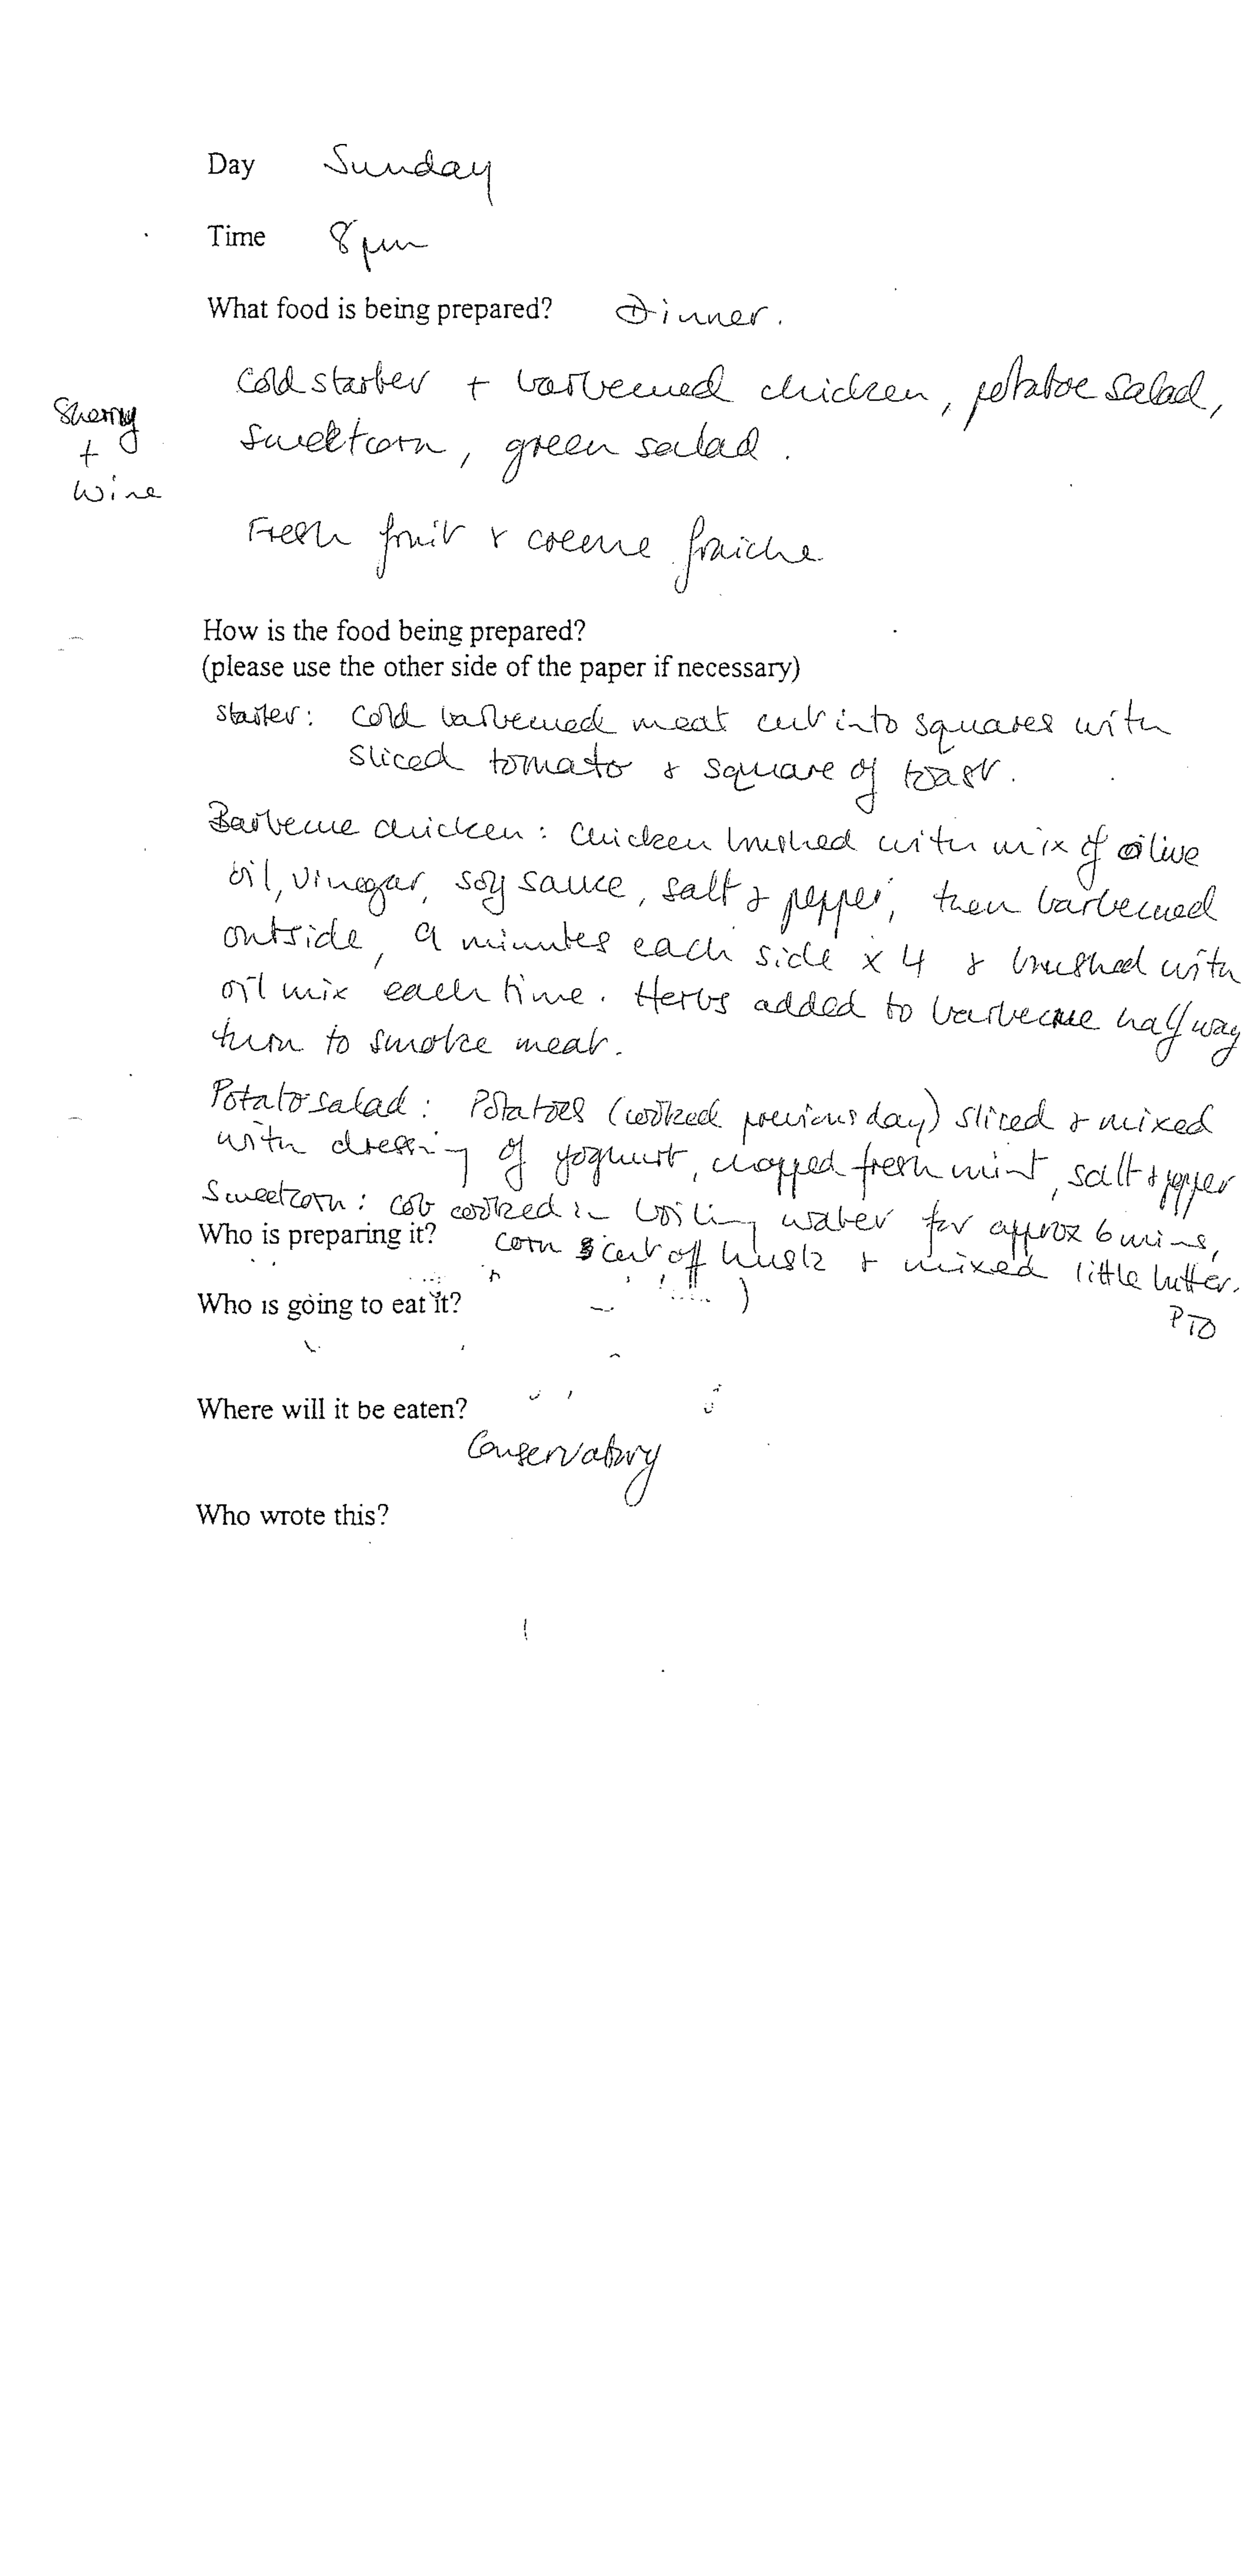 Day Sunday
Time 8pm
What food is being prepared? Dinner.
Cold starter + barbecued chicken, potatoe salad,
Sherry
+
Wine
Sweetcorn, green salad.
Fresh fruit & creme fraiche
How is the food being prepared?
(please use the other side of the paper if necessary)
Starter: Cold barbecued meat cut into squares with
sliced tomato & square of toast.
Barbecue chicken: Chicken brushed with mix of olive
oil, vinegar, soy sauce, salt & pepper, then barbecued
outside, 9 minutes each side x 4 & brushed with
oil mix each time. Herbs added to barbecue halfway
turn to smoke meat.
Potato salad: Potatoes (cooked previous day) sliced & mixed
with dressing of yoghurt, chopped fresh mint, salt & pepper
Sweetcorn: cob cooked in boiling water for approx 6 mins,
Who is preparing it? corn cut off husk & mixed little butter.
Who is going to eat it?
PTO
Where will it be eaten?
Conservatory
Who wrote this?